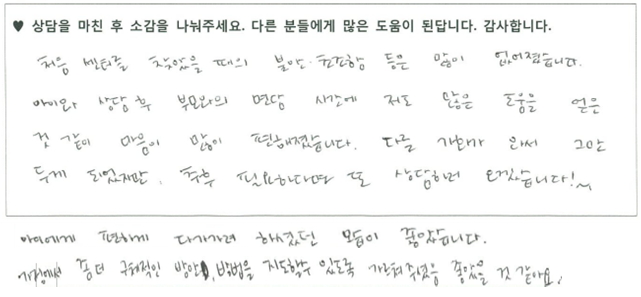 ♥ 상담을 마친 후 소감을 나눠주세요. 다른 분들에게 많은 도움이 된답니다. 감사합니다.
처음 센터를 찾았을 때의 불안·초조함 등은 많이 없어졌습니다.
아이와 상담 후 부모와의 면담 시간에 저도 많은 도움을 얻은
것 같이 마음이 많이 편해졌습니다. 다른 기회가 와서 그만
두게 되었지만, 추후 필요하다면 또 상담하러 오겠습니다!~
아이에게 편하게 다가가려 하셨던 모습이 좋았습니다.
가정에서 좀더 구체적인 방안, 방법을 지도할수 있도록 가르쳐주셨음 좋았을 것 같아요.